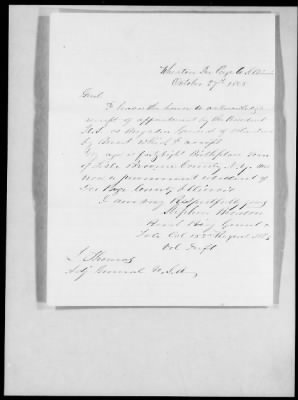 Wheaton Du Page Co Illinois
October 27th 1868
Genl.
I have the honor to acknowledge
receipt of appointment by the President
U.S. as Brigadier General of Volunteers
by Brevet which I accept
My age is forty eight Birthplace town
of Lisle Broome County N.Y. am
now a permanent resident of
Du Page County Illinois
I am very Respectfully yours
Brevt Brig General
Late Col
Vol Inft
L Thomas
Adj General U.S.A.